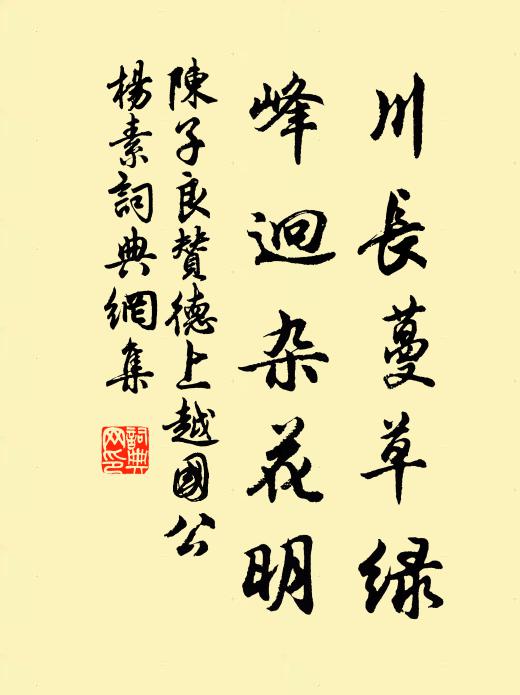 川長蔓草綠
峰迴杂花明
陳子良賛德上越國公
楊素詞典網集
詞典
网印